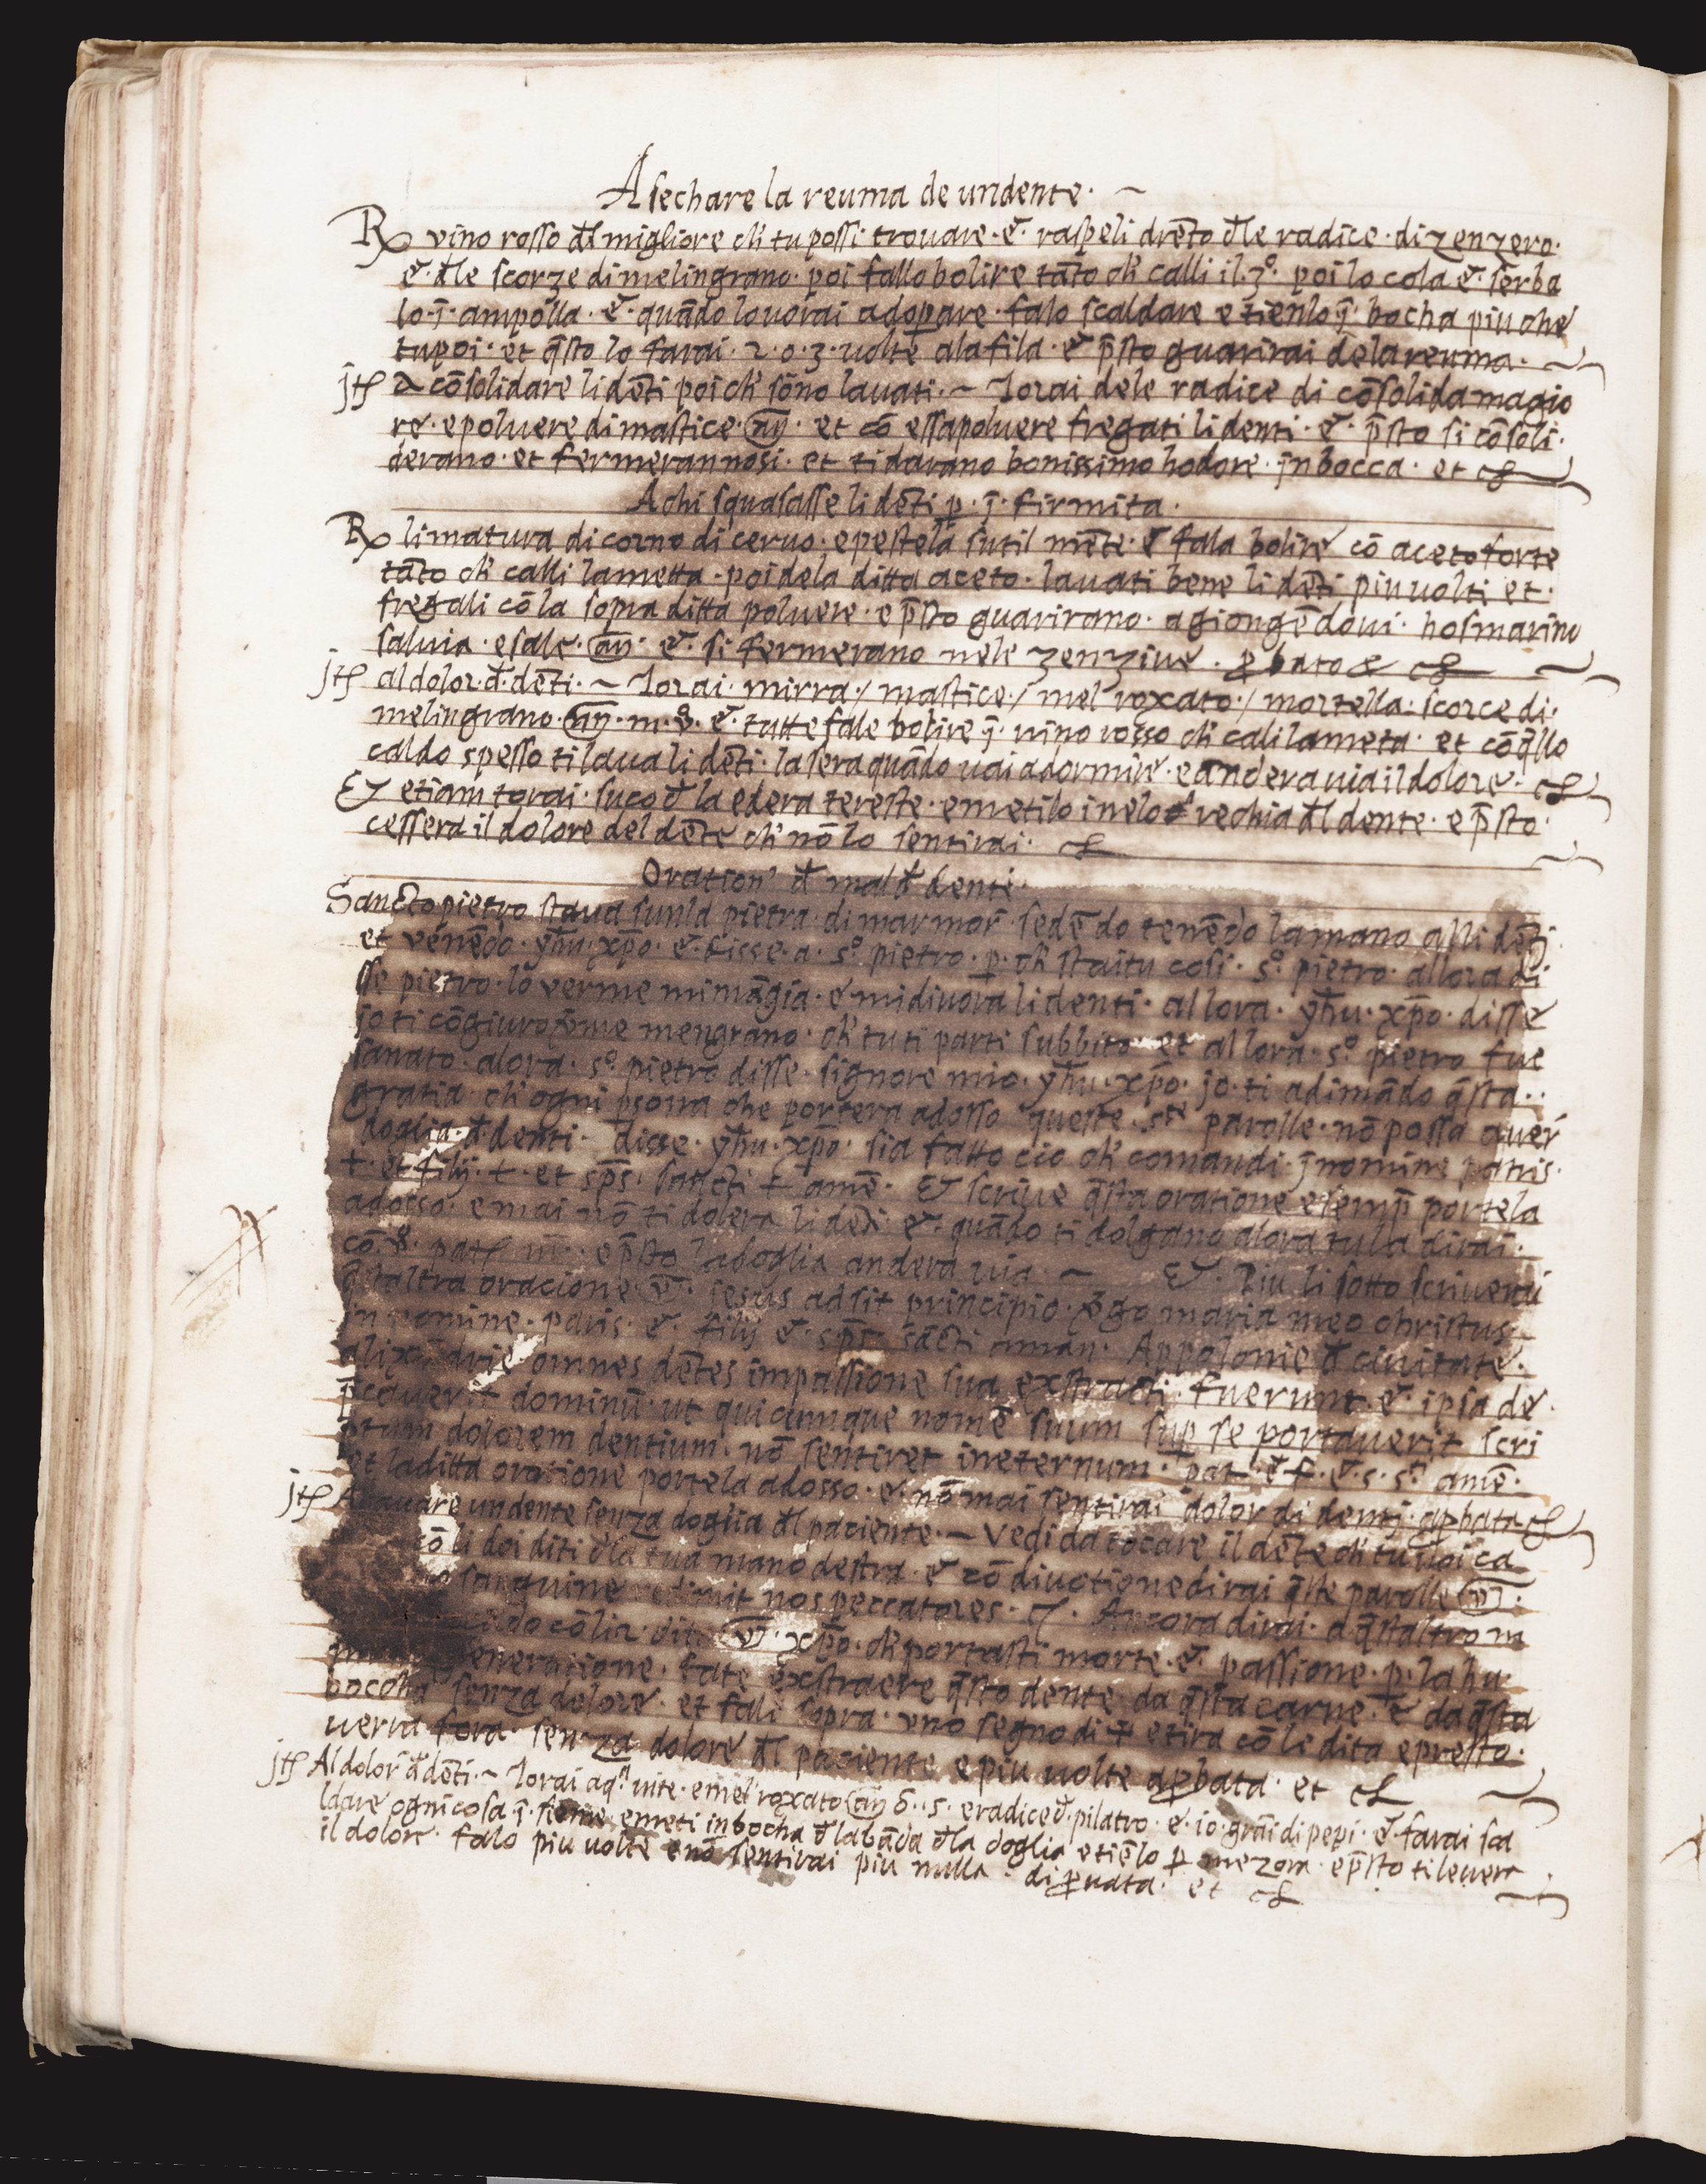 A sechare la reuma de undente · ~
℞ vino rosso đl migliore ch' tu possi trouare · & · raspeli drēto đle radice · di zenzero ·
& · đle scorze di melingrano · poi fallo bolire tāto ch' calli il · 3° · poi lo cola & · serba
lo · ī · ampolla · & · quādo lo uorai adoꝑare · falo scaldare e tienlo ī · bocha piu che
tu poi · et q̄sto lo farai · 2 · o · 3 · uolte ala fila · & p̄sto guarirai dela reuma · ~
jtꝭ A cōsolidare li dēti poi ch' sōno lauati · ~ Torai dele radice di cōsolida magio
re · e poluere di mastice · an̄ · et cō essa poluere fregati li denti · & · p̄sto si cōsoli ·
derano · et fermerannosi · et ti darano bonissimo hodore · jn bocca · et
A chi squasasse li dēti ꝑ · ī · firmita ·
℞ limatura di corno di ceruo · e pestela sutil mēte · & fala bolire cō aceto forte
tāto ch' calli la metta · poi dela ditta aceto · lauati bene li dēti piu uolti et ·
fregali cō la sopra ditta poluere · e p̄sto guarirano · agiongēdoui · hosmarino
saluia · e sale · an̄ · & · si fermerano nele zenziue · ꝓbato &
jtꝭ al dolor · đ · dēti · ~ Torai · mirra · / mastice · / mel roxato · / mortella · scorce di ·
melingrano · an̄ · m · ꝸ · & · tutte fale bolire ī · uino rosso ch' cali la meta · et cō q̄llo
caldo spesso ti laua li dēti · la sera quādo uai a dormire · e andera uia il dolore ·
& etiam torai · suco đ la edera tereste · e metilo inelo rechia đl dente · e p̄sto ·
cessera il dolore del dēte ch' nō lo sentirai ·
Oration' đ mal đ dente ·
Sancto pietro staua sunla pietra · di marmor̄ · sedēdo tenēdo la mano alli dētj
et venēdo · yh̄u · xp̄o · & · disse · a · s° · pietro · ꝑ · ch' staitu cosi · s° · pietro · allora di
sse pietro · lo verme mi māgia · & mi diuora li denti · allora · yh̄u · xp̄o · disse
jo ti cōgiuro me mengrano · ch' tu ti parti subbito et allora · s° · pietro fue
sanato · alora · s° · pietro disse · signore mio · yh̄u · xp̄o · jo · ti adimādo q̄sta · ·
gratia · ch' ogni ꝑsona che portera adosso queste · s^te · parolle · nō possa auer̄
doglia · đ · denti · disse · yh̄u · xp̄o · sia fatto cio ch' comandi · ī nomine patris ·
† · et filij · † · et sp̄s · sancti † amē · & scriue q̄sta oratione e semp̄ portela
adosso · e mai nō ti dolera li dēti & · quādo ti dolgano alora tu la dirai ·
cō · ꝸ · e p̄sto la doglia andera uia · ~ & · Piu li sotto scriuerai
q̄staltra oracione · Jesus adsit principio · maria meo christus
in nomine · patris · & · filij & · sp̄s sācti aman · Appolonie đ ciuitate ·
alixādrie omnes dētes impassione sua exstracti · fuerunt · & · ipsa de ·
p̄cauerit dominū · ut quicumque nomē suum sup̄ se portauerit scri
ptum dolorem dentium · nō sentiret ineternum · pat̄ · & f · & · s · s^ti amē ·
et la ditta oratione portela adosso · & nō mai sentirai dolor di dentj · aꝓbata
jtꝭ A cauare undente senza doglia đl paciente · ~ Vedi da tocare il dēte ch' tu uoi ca
cō li doi diti đla tua mano destra · & cō diuotione dirai q̄ste parolle
sanguine redimit nos peccatores · Ancora dirai · a q̄staltro m
do cō li 2 · dit xp̄o · ch' portasti morte · & · passione · ꝑ · la hu
generatione · fate exstraere q̄sto dente · da q̄sta carne · & da q̄sta
boccha senza dolore · et fali sopra · vno segno di † e tira cō le dita e presto ·
uerra fora · senza dolore đl paciente e piu uolte aꝓbata · et
jtꝭ Al dolor đ dēti · ~ Torai aq^a uite · e mel roxato an̄ · 5 · e radice đ · pilatro · & · io · grāi di pepi · & · farai sca
ldare ogni cosa ī · sieme · e meti in bocha đ la bāda đla doglia e tiēlo ꝑ mezora · e p̄sto ti leuera
il dolore · falo piu uolte e nō sentirai piu nulla · di ꝓuata · et